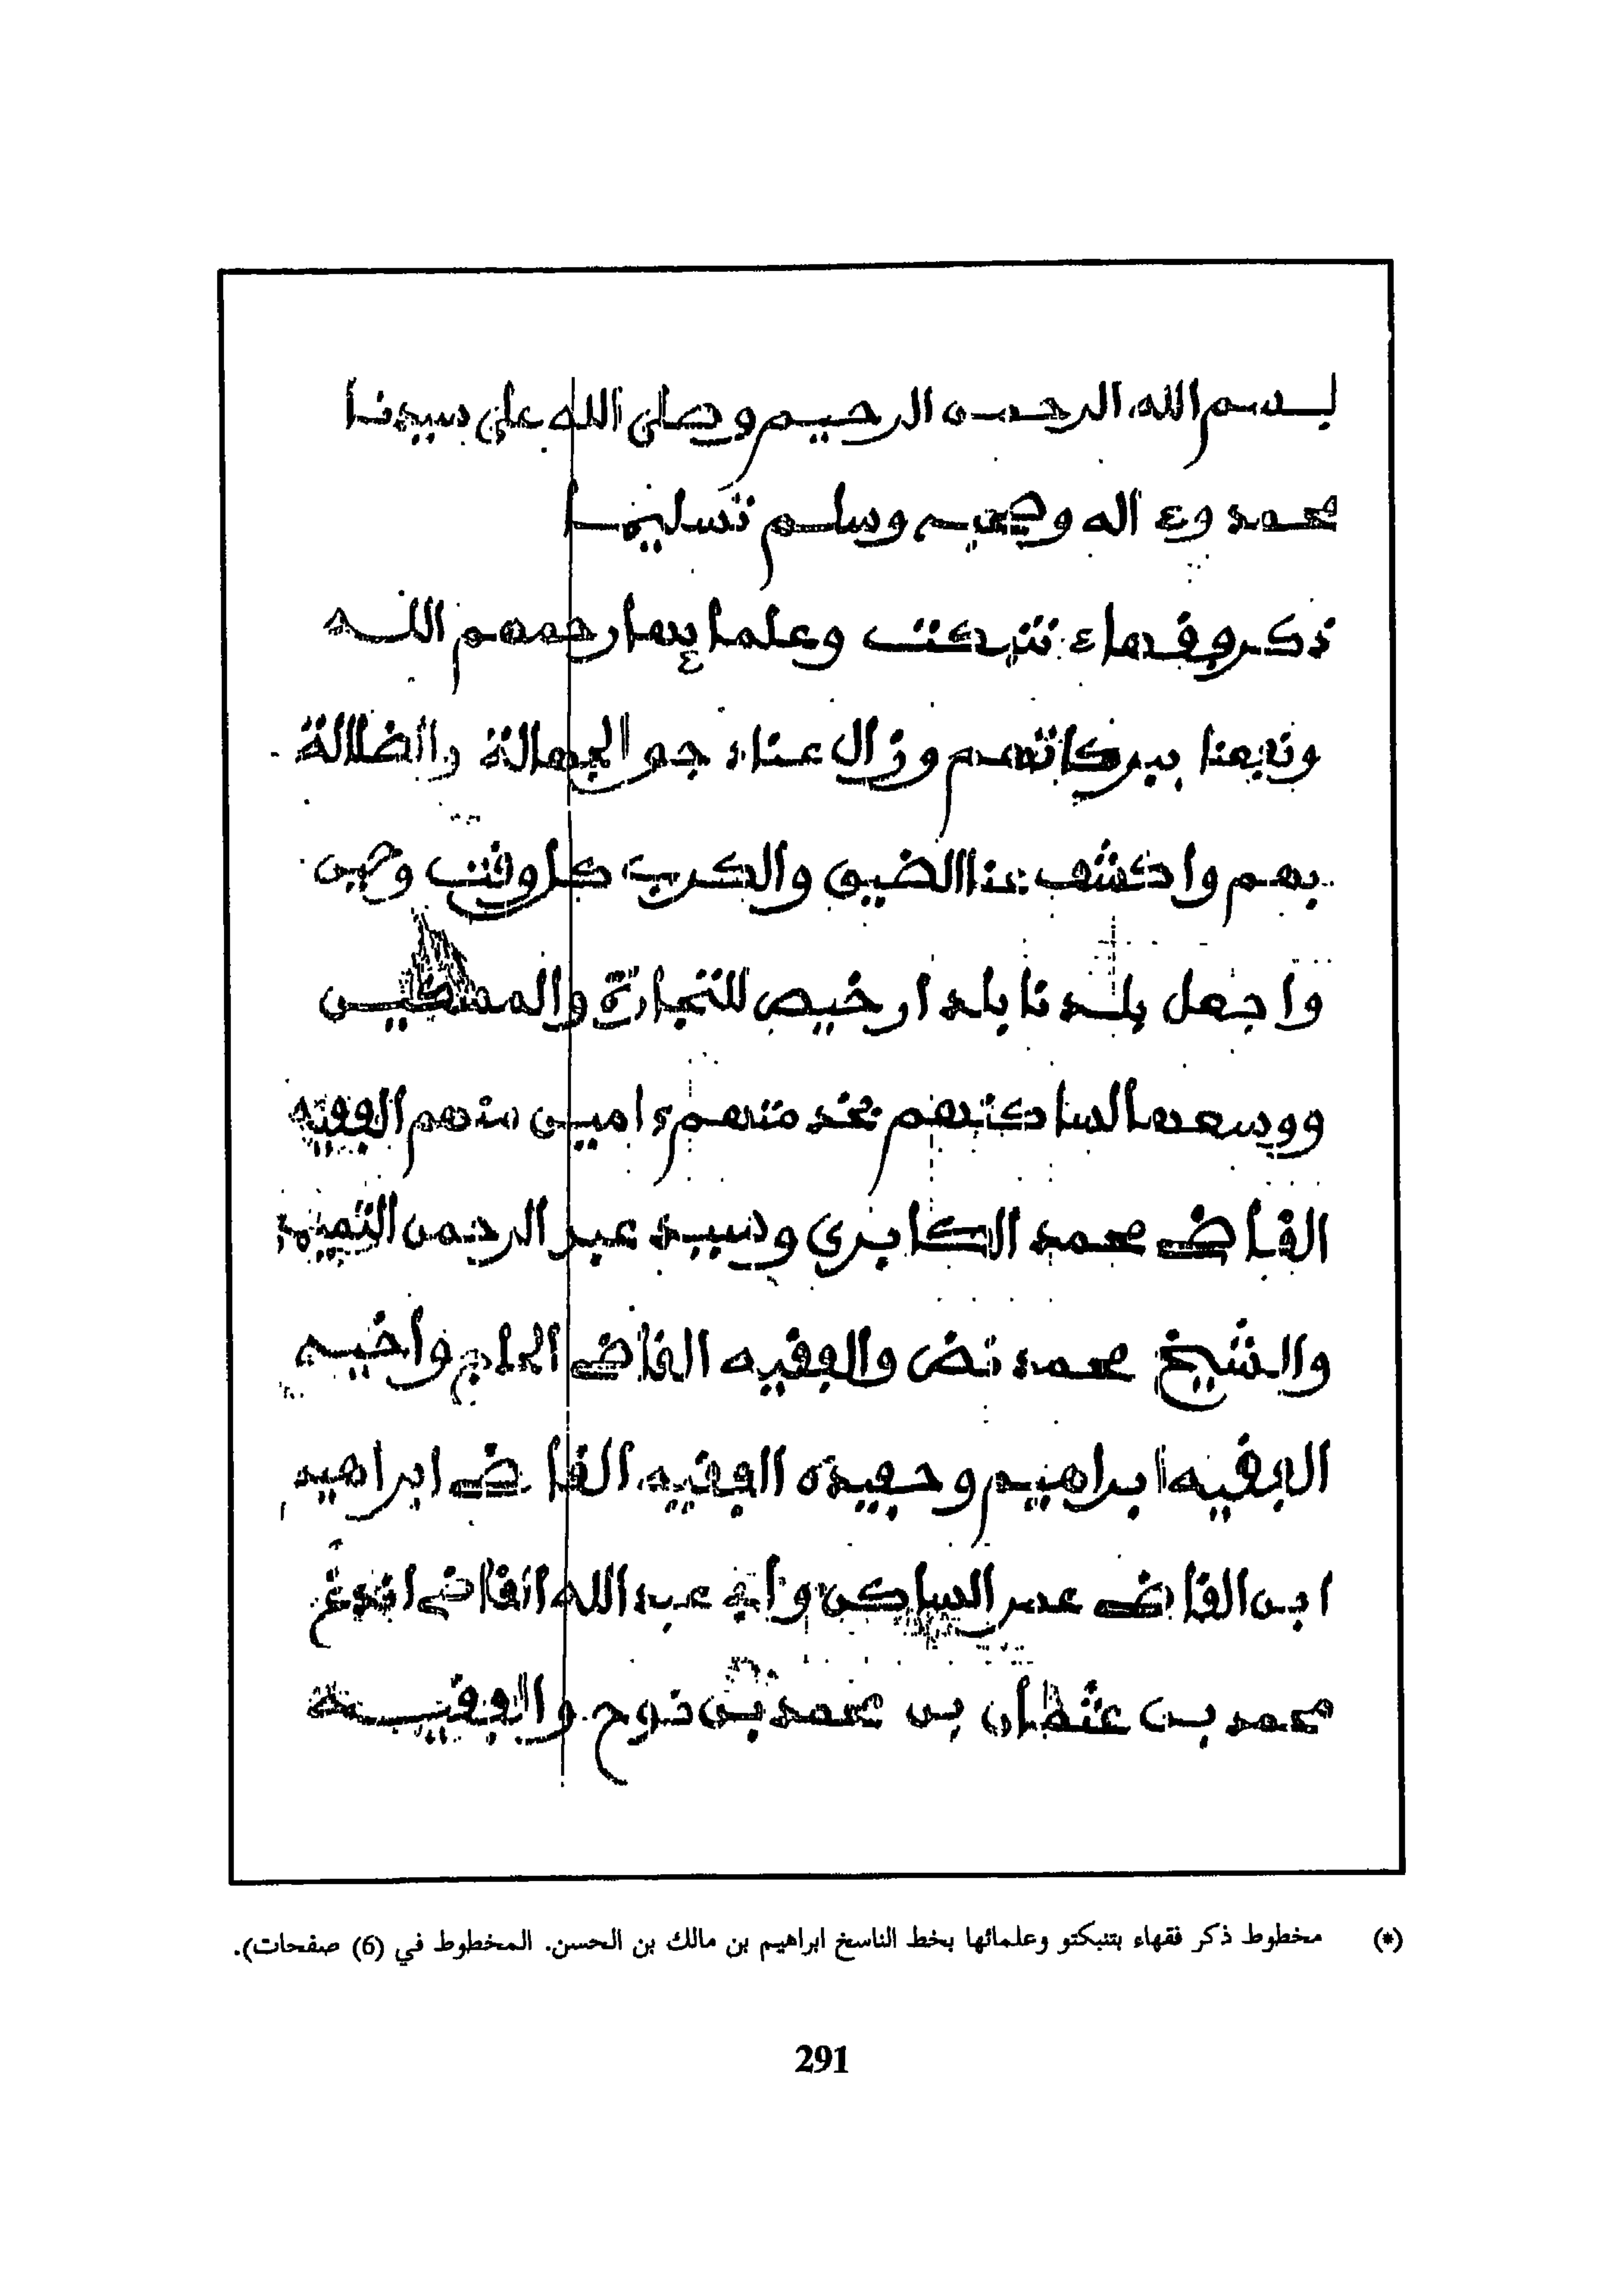 بسم الله الرحمن الرحيم وصلى الله على سيدنا
محمد وع اله وصحبه وسلم تسليما
ذكر فقهاء تنبكت وعلمايها رحمهم الله
ونفعنا ببركاتهم وزال عنا الجهالة والضلالة
بهم واكشف عنا الضيق والكرب كل وقت وحين
واجعل بلدنا بلدا رخيص للتجارة
ووسعها لساكنهم امين منهم الفقيه
القاضي محمد الكابري وسيد عبد الرحمن التميمي
والشيخ محمد نض والفقيه القاضي الحاج واخيه
الفقيه ابراهيم وحفيده الفقيه القاضي ابراهيم
ابن القاضي عمر الساكن عبد الله القاضي اندغ
محمد بن عثمان بن محمد بن نوح والفقيه
(*) مخطوط ذكر فقهاء بتنبكتو وعلمائها بخط الناسخ ابراهيم بن مالك بن الحسن. المخطوط في (6) صفحات).
291